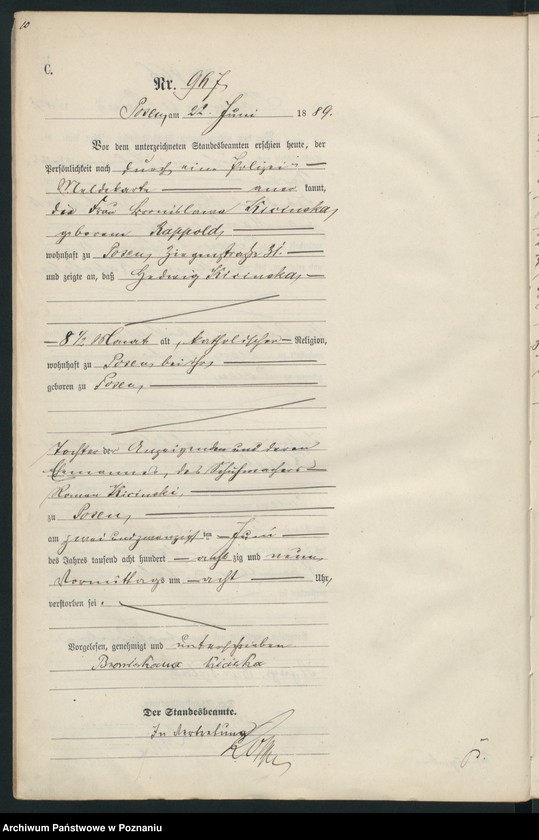 10
C.
Nr. 967
Posen, am 22. Juni 1889.
Vor dem unterzeichneten Standesbeamten erschien heute, der
Persönlichkeit nach durch eine Polizei-
Meldekarte aner kannt,
die Frau Bronislawa Kicinska,
geborene Rappold,
wohnhaft zu Posen, Ziegenstraße 21.
und zeigte an, daß Hedwig Kicinska,
8 ½ Monat alt, katholischer Religion,
wohnhaft zu Posen bei ihr,
geboren zu Posen,
Tochter der Anzeigenden und deren
Ehemannes, des Schuhmachers
Roman Kicinski,
zu Posen,
am zwei und zwanzigsten Juni
des Jahres tausend acht hundert acht zig und neun,
Vormittags um acht Uhr,
verstorben sei.
Vorgelesen, genehmigt und unterschrieben
Bronisława
Der Standesbeamte.
In Vertretung
Archiwum Państwowe w Poznaniu